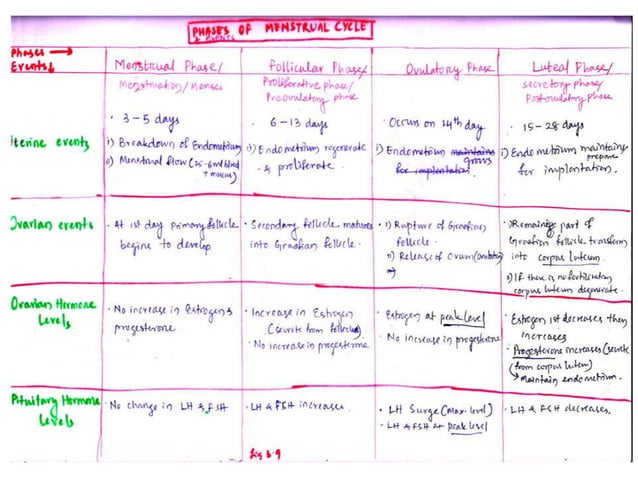 PHASES OF MENSTRUAL CYCLE
& EVENTS
Phases →
Events↓
Menstrual Phase/
Menstruation/menses
Follicular Phase/
Proliferative phase/
Preovulatory phase
Ovulatory Phase
Luteal Phase/
secretory phase/
Postovulatory phase
Uterine events
· 3-5 days
i) Breakdown of Endometrium
ii) Menstrual flow (
+ mucus)
· 6-13 days
i) Endometrium regenerate
& proliferate.
· Occurs on 14th day
i) Endometrium maintains grows
for implantation.
· 15-28 days
i) Endometrium maintains
prepare
for implantation.
Ovarian events
· At 1st day primary follicle
begins to develop
· Secondary follicle matures
into Graafian follicle.
· i) Rupture of Graafian
follicle.
ii) Release of Ovum
i) Remaining part of
Graafian follicle transform
into corpus luteum.
ii) If there is no fertilization
corpus luteum degenerate.
Ovarian Hormone
Levels
· No increase in Estrogen &
progesterone
· Increase in Estrogen
(secrete from follicles)
· No increase in progesterone
Estrogen at peak level
· No increase in progesterone
· Estrogen 1st decreases then
increases
· Progesterone increases (secrete
(from corpus luteum)
→ maintain endometrium.
Pituitary Hormone
Levels
· No change in LH & FSH
· LH & FSH increases.
· LH Surge (Max. level)
· LH & FSH at peak level
· LH & FSH decreases.
Fig 3.9